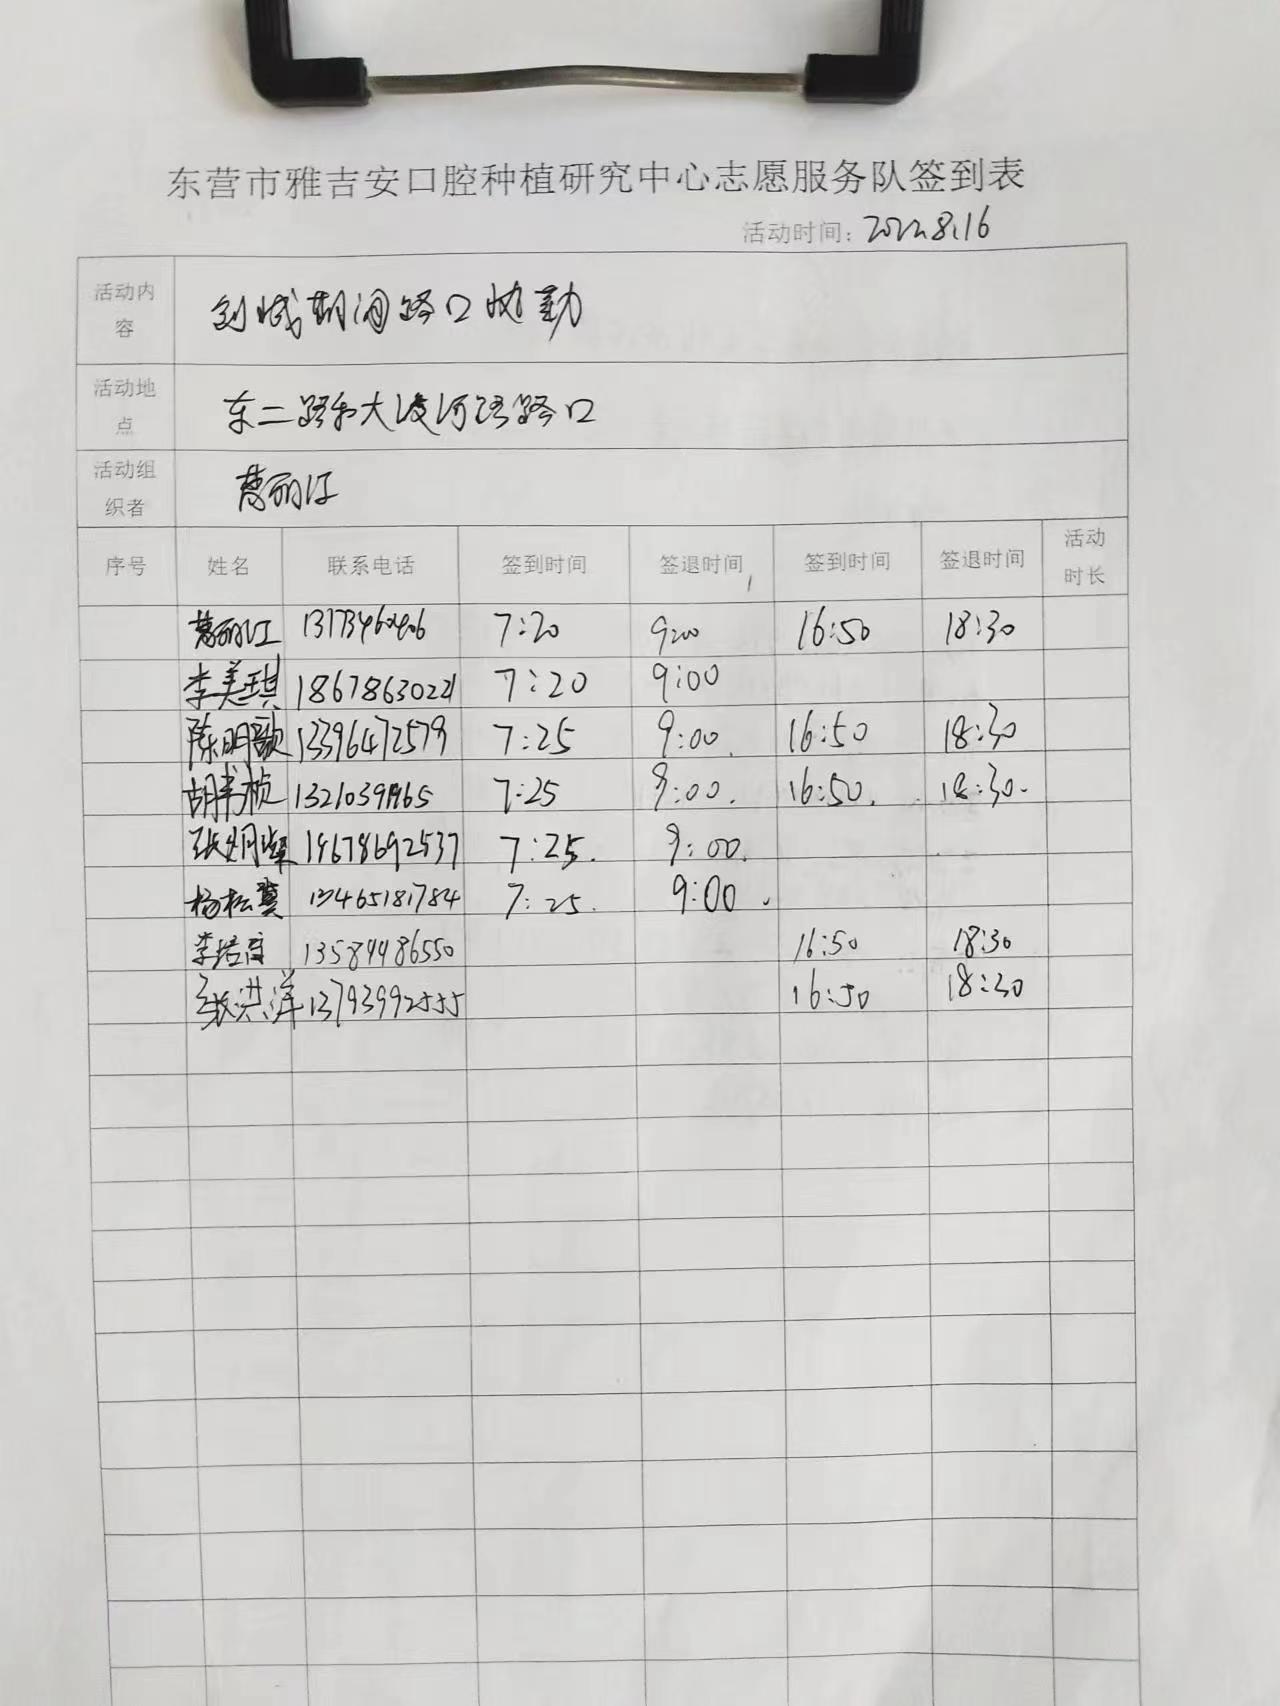 东营市雅吉安口腔种植研究中心志愿服务队签到表
活动时间: 2022.8.16
活动内容 创城期间路口执勤
活动地点 东二路和大渡河路路口
活动组织者
序号 姓名 联系电话 签到时间 签退时间 签到时间 签退时间 活动时长
7:20 9:00 16:50 18:30
李美琪 18678630221 7:20 9:00
陈明歌 13396472579 7:25 9:00 16:50 18:30
胡书桢 7:25 9:00 16:50 18:30
7:25 9:00
杨松冀 13465181784 7:25 9:00
李培育 13589486550 16:50 18:30
张洪洋 13793992555 16:50 18:30